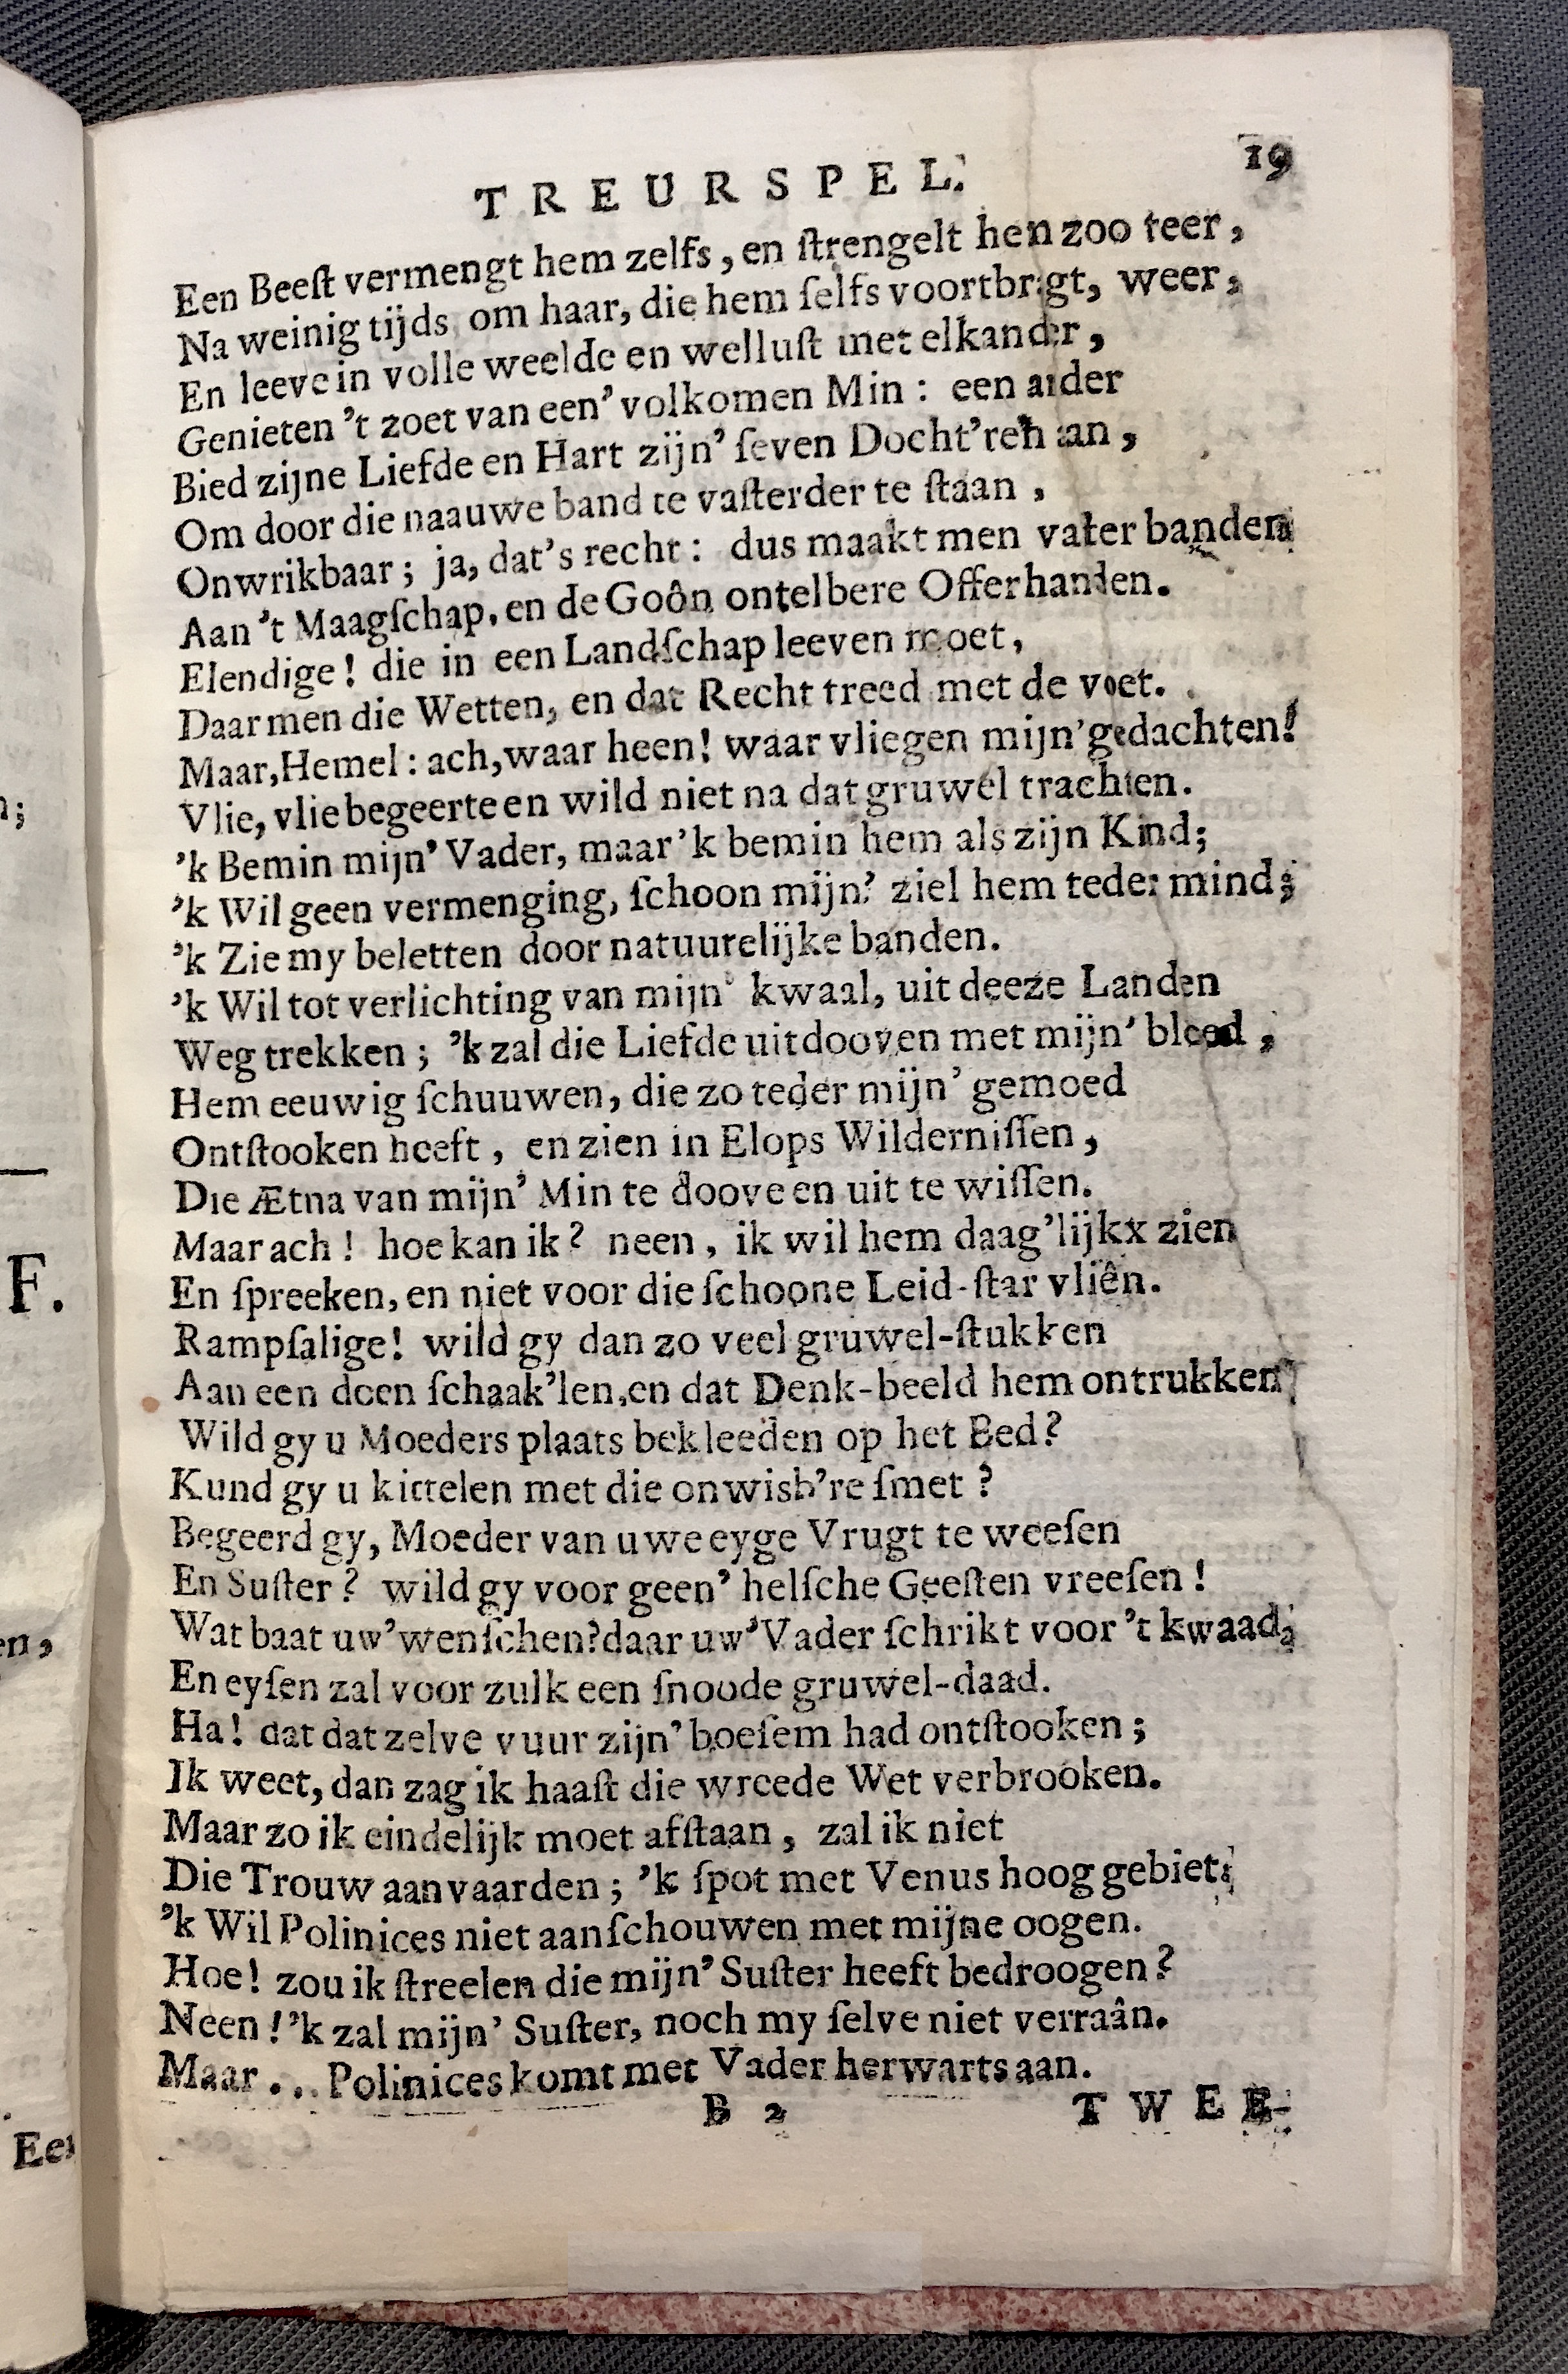 TREURSPEL. 19
Een Beeſt vermengt hem zelfs, en ſtrengelt hen zoo teer,
Na weinig tijds om haar, die hem ſelfs voortbragt, weer,
En leeve in volle weelde en welluſt met elkander,
Genieten 't zoet van een' volkomen Min: een ander
Bied zijne Liefde en Hart zijn' ſeven Docht'ren aan,
Om door die naauwe band te vaſter der te ſtaan,
Onwrikbaar; ja, dat's recht: dus maakt men vaſter banden
Aan 't Maagſchap, en de Goôn ontelbere Offerhanden.
Elendige! die in een Landſchap leeven moet,
Daar men die Wetten, en dat Recht treed met de voet.
Maar, Hemel: ach, waar heen! waar vliegen mijn' gedachten!
Vlie, vlie begeerte en wild niet na dat gruwel trachten.
'k Bemin mijn' Vader, maar 'k bemin hem als zijn Kind;
'k Wil geen vermenging, ſchoon mijn' ziel hem teder mind;
'k Zie my beletten door natuurelijke banden.
'k Wil tot verlichting van mijn' kwaal, uit deeze Landen
Weg trekken; 'k zal die Liefde uitdooven met mijn' bloed,
Hem eeuwig ſchuuwen, die zo teder mijn' gemoed
Ontſtooken heeft, en zien in Elops Wilderniſſen,
Die Ætna van mijn' Min te doove en uit te wiſſen.
Maar ach! hoe kan ik? neen, ik wil hem daag'lijkx zien
En ſpreeken, en niet voor die ſchoone Leid-ſtar vliên.
Rampſalige! wild gy dan zo veel gruwel-ſtukken
Aan een doen ſchaak'len, en dat Denk-beeld hem ontrukken?
Wild gy u Moeders plaats bekleeden op het Bed?
Kund gy u kittelen met die onwisb're ſmet?
Begeerd gy, Moeder van uwe eyge Vrugt te weeſen
En Suſter? wild gy voor geen' helſche Geeſten vreeſen!
Wat baat uw' wenſchen? daar uw' Vader ſchrikt voor 't kwaad,
En eyſen zal voor zulk een ſnoode gruwel-daad.
Ha! dat dat zelve vuur zijn' boeſem had ontſtooken;
Ik weet, dan zag ik haaſt die wreede Wet verbrooken.
Maar zo ik eindelijk moet afſtaan, zal ik niet
Die Trouw aanvaarden; 'k ſpot met Venus hoog gebiet;
'k Wil Polinices niet aanſchouwen met mijne oogen.
Hoe! zou ik ſtreelen die mijn' Suſter heeft bedroogen?
Neen! 'k zal mijn' Suſter, noch my ſelve niet verraân.
Maar... Polinices komt met Vader herwarts aan.
B 2 TWEE-
n;
F.
en,